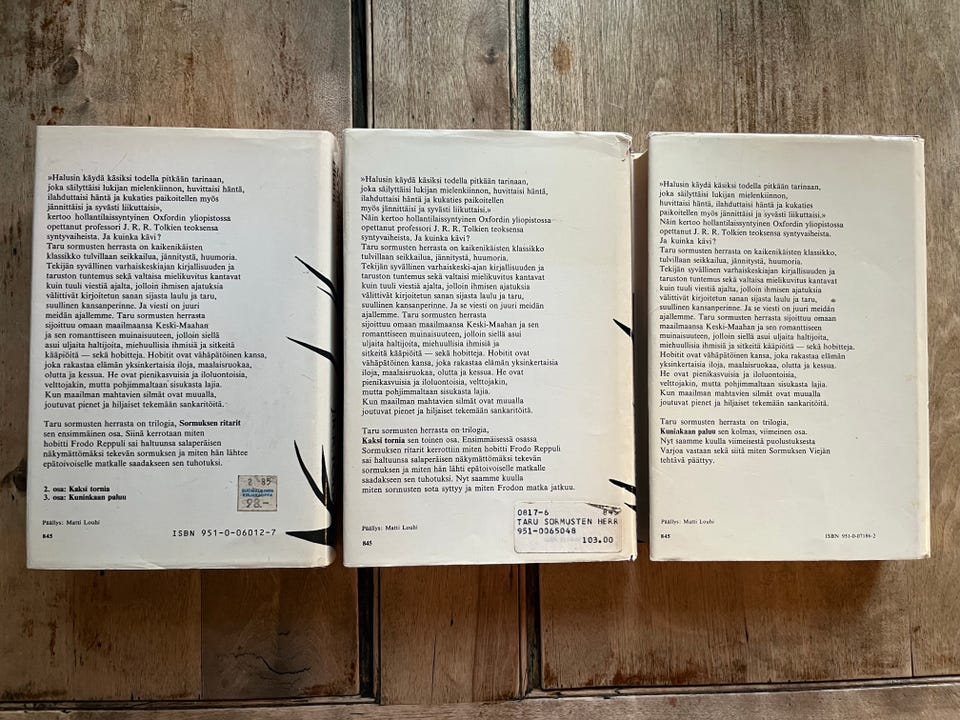 »Halusin käydä käsiksi todella pitkään tarinaan,
joka säilyttäisi lukijan mielenkiinnon, huvittaisi häntä,
ilahduttaisi häntä ja kukaties paikoitellen myös
jännittäisi ja syvästi liikuttaisi»,
kertoo hollantilaissyntyinen Oxfordin yliopistossa
opettanut professori J. R. R. Tolkien teoksensa
syntyvaiheista. Ja kuinka kävi?
Taru sormusten herrasta on kaikenikäisten
klassikko tulvillaan seikkailua, jännitystä, huumoria.
Tekijän syvällinen varhaiskeskiajan kirjallisuuden ja
taruston tuntemus sekä valtaisa mielikuvitus kantavat
kuin tuuli viestiä ajalta, jolloin ihmisen ajatuksia
välittivät kirjoitetun sanan sijasta laulu ja taru,
suullinen kansanperinne. Ja viesti on juuri
meidän ajallemme. Taru sormusten herrasta
sijoittuu omaan maailmaansa Keski-Maahan
ja sen romanttiseen muinaisuuteen, jolloin siellä
asui uljaita haltijoita, miehuullisia ihmisiä ja sitkeitä
kääpiöitä — sekä hobitteja. Hobitit ovat vähäpätöinen kansa,
joka rakastaa elämän yksinkertaisia iloja, maalaisruokaa,
olutta ja kessua. He ovat pienikasvuisia ja iloluontoisia,
velttojakin, mutta pohjimmaltaan sisukasta lajia.
Kun maailman mahtavien silmät ovat muualla,
joutuvat pienet ja hiljaiset tekemään sankaritöitä.
Taru sormusten herrasta on trilogia, Sormuksen ritarit
sen ensimmäinen osa. Siinä kerrotaan miten
hobitti Frodo Reppuli sai haltuunsa salaperäisen
näkymättömäksi tekevän sormuksen ja miten hän lähtee
epätoivoiselle matkalle saadakseen sen tuhotuksi.
2. osa: Kaksi tornia
3. osa: Kuninkaan paluu
2 85
98.-
Päällys: Matti Louhi
845
ISBN 951-0-06012-7
»Halusin käydä käsiksi todella pitkään tarinaan,
joka säilyttäisi lukijan mielenkiinnon, huvittaisi häntä,
ilahduttaisi häntä ja kukaties paikoitellen myös
jännittäisi ja syvästi liikuttaisi.»
Näin kertoo hollantilaissyntyinen Oxfordin yliopistossa
opettanut professori J. R. R. Tolkien teoksensa
syntyvaiheista. Ja kuinka kävi?
Taru sormusten herrasta on kaikenikäisten klassikko
tulvillaan seikkailua, jännitystä, huumoria.
Tekijän syvällinen varhaiskeski-ajan kirjallisuuden ja
taruston tuntemus sekä valtaisa mielikuvitus kantavat
kuin tuuli viestiä ajalta, jolloin ihmisen ajatuksia
välittivät kirjoitetun sanan sijasta laulu ja taru,
suullinen kansanperinne. Ja se viesti on juuri meidän
ajallemme. Taru sormusten herrasta
sijoittuu omaan maailmaansa Keski-Maahan ja sen
romanttiseen muinaisuuteen, jolloin siellä asui
uljaita haltijoita, miehuullisia ihmisiä ja
sitkeitä kääpiöitä — sekä hobitteja. Hobitit ovat
vähäpätöinen kansa, joka rakastaa elämän yksinkertaisia
iloja, maalaisruokaa, olutta ja kessua. He ovat
pienikasvuisia ja iloluontoisia, velttojakin,
mutta pohjimmaltaan sisukasta lajia.
Kun maailman mahtavien silmät ovat muualla
joutuvat pienet ja hiljaiset tekemään sankaritöitä.
Taru sormusten herrasta on trilogia,
Kaksi tornia sen toinen osa. Ensimmäisessä osassa
Sormuksen ritarit kerrottiin miten hobitti Frodo Reppuli
sai haltuunsa salaperäisen näkymättömäksi tekevän
sormuksen ja miten hän lähti epätoivoiselle matkalle
saadakseen sen tuhotuksi. Nyt saamme kuulla
miten sormusten sota syttyy ja miten Frodon matka jatkuu.
Päällys: Matti Louhi
845
0817-6 845
TARU SORMUSTEN HERR
951-0065048
103.00
»Halusin käydä käsiksi todella pitkään tarinaan,
joka säilyttäisi lukijan mielenkiinnon,
huvittaisi häntä, ilahduttaisi häntä ja kukaties
paikoitellen myös jännittäisi ja syvästi liikuttaisi.»
Näin kertoo hollantilaissyntyinen Oxfordin yliopistossa
opettanut J. R. R. Tolkien teoksensa syntyvaiheista.
Ja kuinka kävi?
Taru sormusten herrasta on kaikenikäisten klassikko,
tulvillaan seikkailua, jännitystä, huumoria.
Tekijän syvällinen varhaiskeskiajan kirjallisuuden ja
taruston tuntemus sekä valtaisa mielikuvitus kantavat
kuin tuuli viestiä ajalta, jolloin ihmisen ajatuksia
välittivät kirjoitetun sanan sijasta laulu ja taru,
suullinen kansanperinne. Ja se viesti on juuri meidän
ajallemme. Taru sormusten herrasta sijoittuu omaan
maailmaansa Keski-Maahan ja sen romanttiseen
muinaisuuteen, jolloin siellä asui uljaita haltijoita,
miehuullisia ihmisiä ja sitkeitä kääpiöitä — sekä hobitteja.
Hobitit ovat vähäpätöinen kansa, joka rakastaa elämän
yksinkertaisia iloja, maalaisruokaa, olutta ja kessua.
He ovat pienikasvuisia ja iloluontoisia,
velttojakin, mutta pohjimmaltaan sisukasta lajia.
Kun maailman mahtavien silmät ovat muualla,
joutuvat pienet ja hiljaiset tekemään sankaritöitä.
Taru sormusten herrasta on trilogia,
Kuniakaan paluu sen kolmas, viimeinen osa.
Nyt saamme kuulla viimeisestä puolustuksesta
Varjoa vastaan sekä siitä miten Sormuksen Viejän
tehtävä päättyy.
Päällys: Matti Louhi
845
ISBN 951-0-07186-2